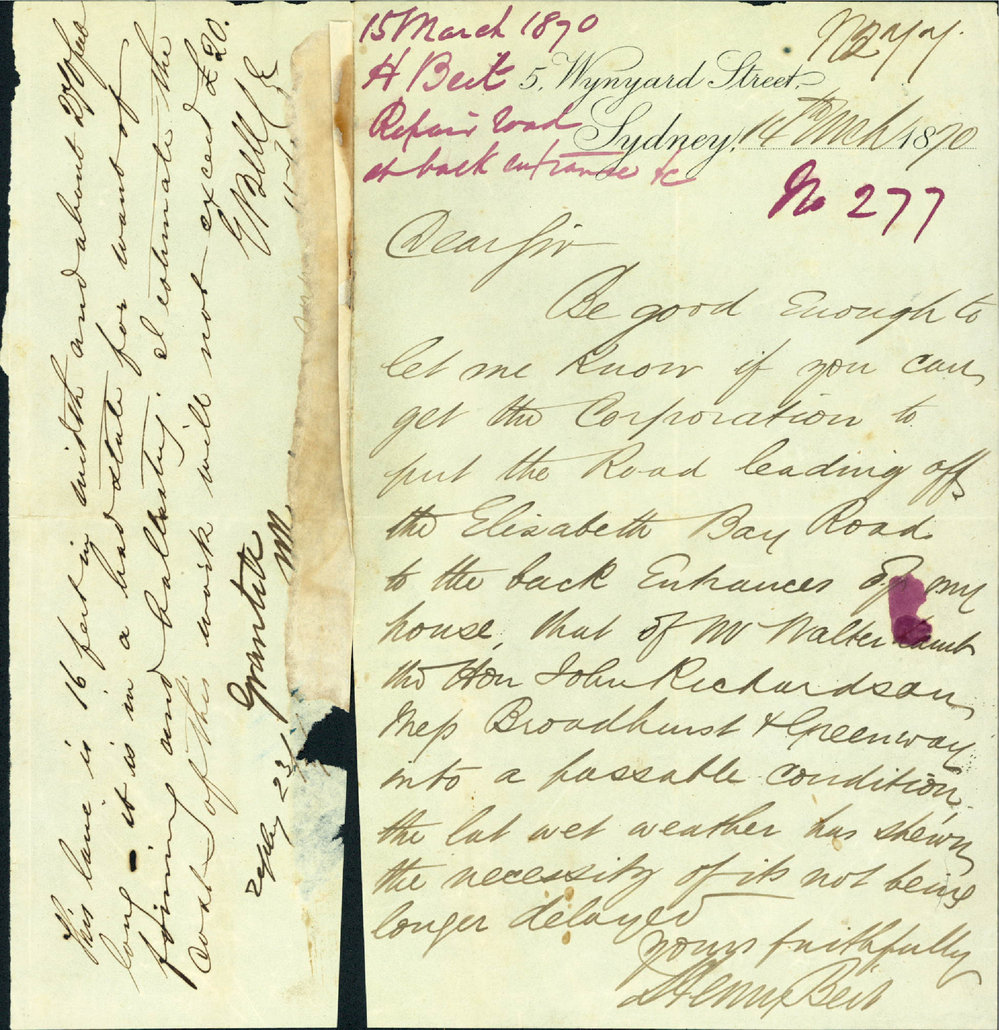 15 March 1870
H Beit
Repair road
at back entranse &c
No 277
5, Wynyard Street
Sydney, 14th Mch 1870
No 277
Dear Sir
Be good Enough to
let me Know if you can
get the Corporation to
put the Road leading off
the Elisabeth Bay Road
to the back Entrances of my
house, that of Mr Walter Lamb
the Hon John Richardson
Mess Broadhurst & Greenway
into a passable condition,
the lat wet weather has shewn
the necessity of its not being
longer delayed
yours faithfully
Henry Beit
This lane is 16 feet in width and about 270 feet
long - it is in a bad state for want of
forming and ballasting. I estimate the
cost of this work will not exceed £20.
E Bell
Granted
reply 23/